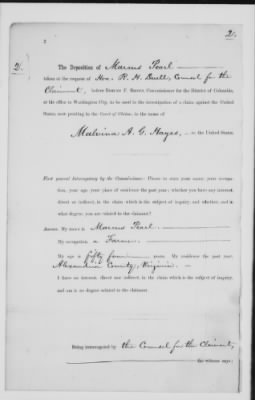 2/.
2
2/.
The Deposition of Marcus Pearl
taken at the request of Hon. R. H. Duell, Counsel for the
Claimant, before Commissioner for the District of Columbia,
at his office in Washington City, to be used in the investigation of a claim against the United
States now pending in the Court of Claims, in the name of
Malvina A. G. Hayes, vs. the United States.
First general Interrogatory by the Commissioner: Please to state your name, your occupa-
tion, your age, your place of residence the past year; whether you have any interest,
direct or indirect, in the claim which is the subject of inquiry; and whether, and in
what degree, you are related to the claimant?
Answer. My name is Marcus Pearl.
My occupation, a Farmer.
My age is fifty four years. My residence the past year,
Alexandria County, Virginia.
I have no interest, direct or indirect, in the claim which is the subject of inquiry,
and am in no degree related to the claimant.
Being interrogated by the Counsel for the Claimant,
the witness says: